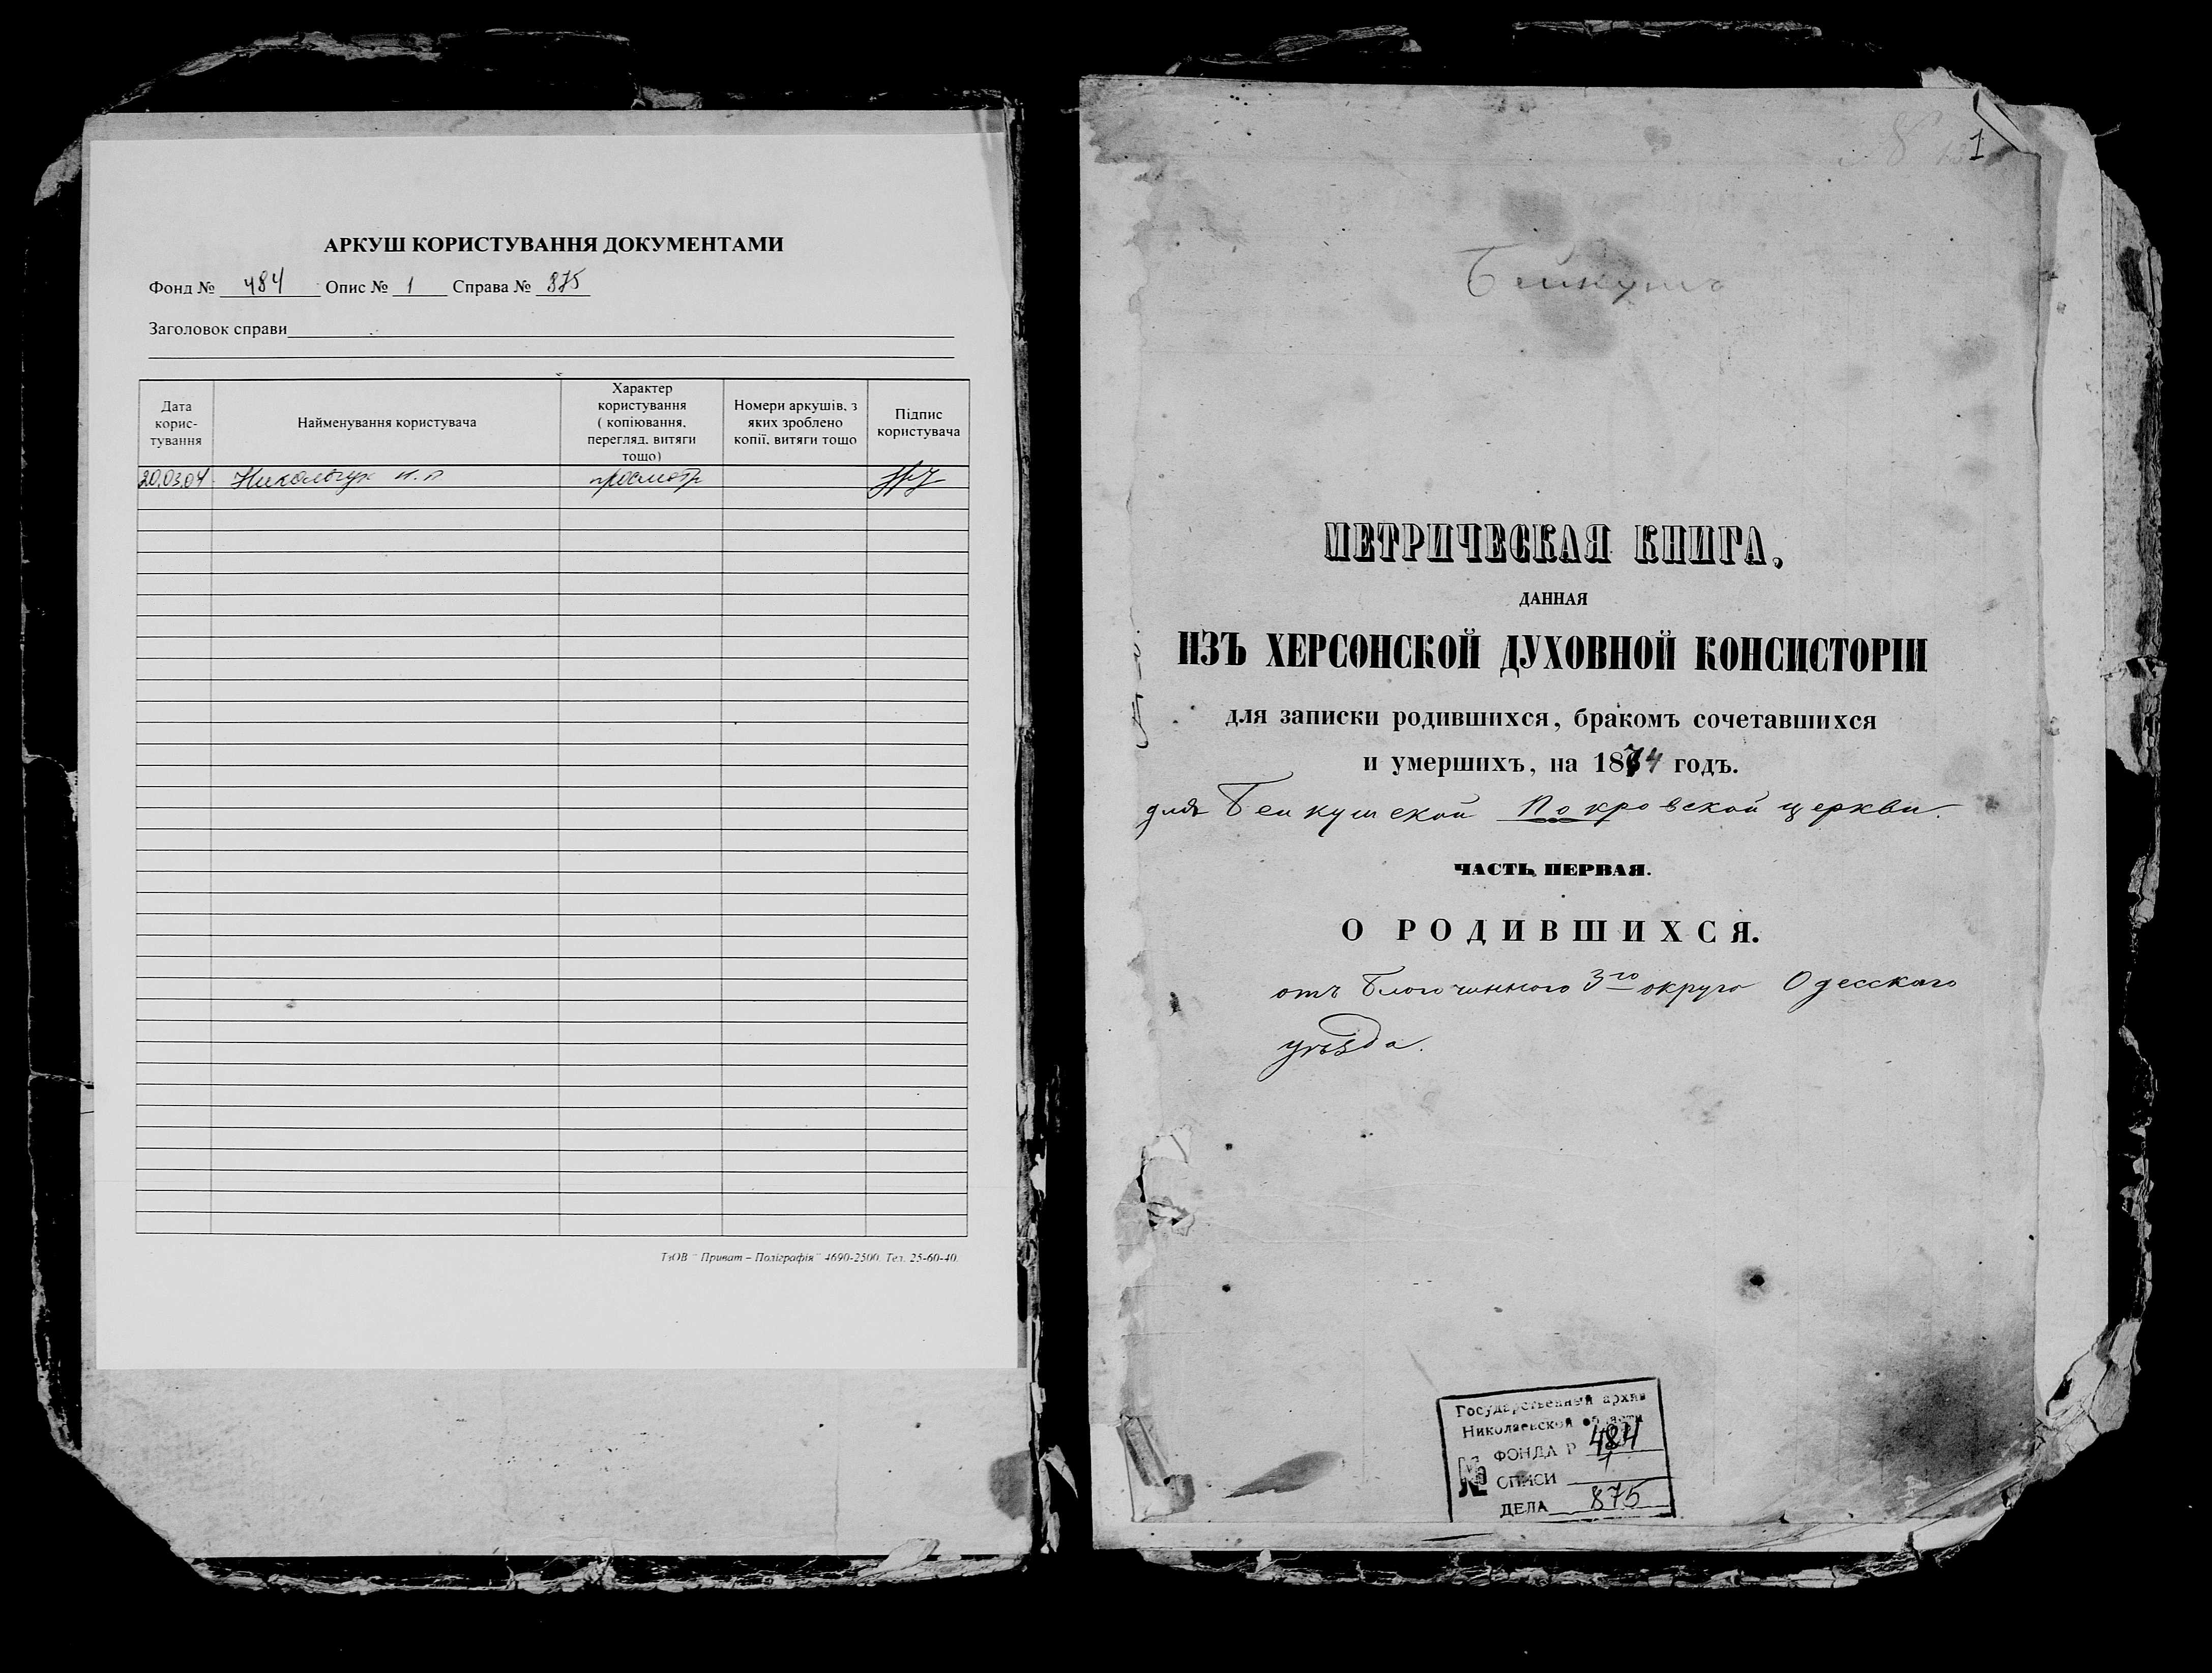 АРКУШ КОРИСТУВАННЯ ДОКУМЕНТАМИ
Фонд № 484 Опис № 1 Справа № 875
Заголовок справи
Дата корис-тування
Найменування користувача
Характер користування ( копіювання, перегляд, витяги тощо)
Номери аркушів, з яких зроблено копії, витяги тощо
Підпис користувача
20.03.04 просмотр
ТзОВ " Приват – Поліграфія" 4690-2500. Тел. 25-60-40.
1
Бейкушъ
МЕТРИЧЕСКАЯ КНИГА,
ДАННАЯ
ИЗЪ ХЕРСОНСКОЙ ДУХОВНОЙ КОНСИСТОРІИ
для записки родившихся, бракомъ сочетавшихся
и умершихъ, на 1874 годъ.
для Бейкушской Покровской церкви.
ЧАСТЬ ПЕРВАЯ.
О РОДИВШИХСЯ.
отъ Благочиннаго 3го округа Одесскаго
уѣзда.
Государственный архив
Николаевской области
ФОНДА Р 484
№ ОПИСИ 1
ДЕЛА 875